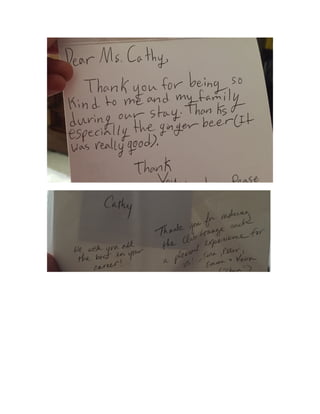 Dear Ms. Cathy,
Thank you for being so
kind to me and my family
during our stay. Thanks
especially the ginger beer(It
was really good).
Thank
Cathy
We wish you all
the best in your
career!
Thank you for making
the
a pleasant experience for
us!